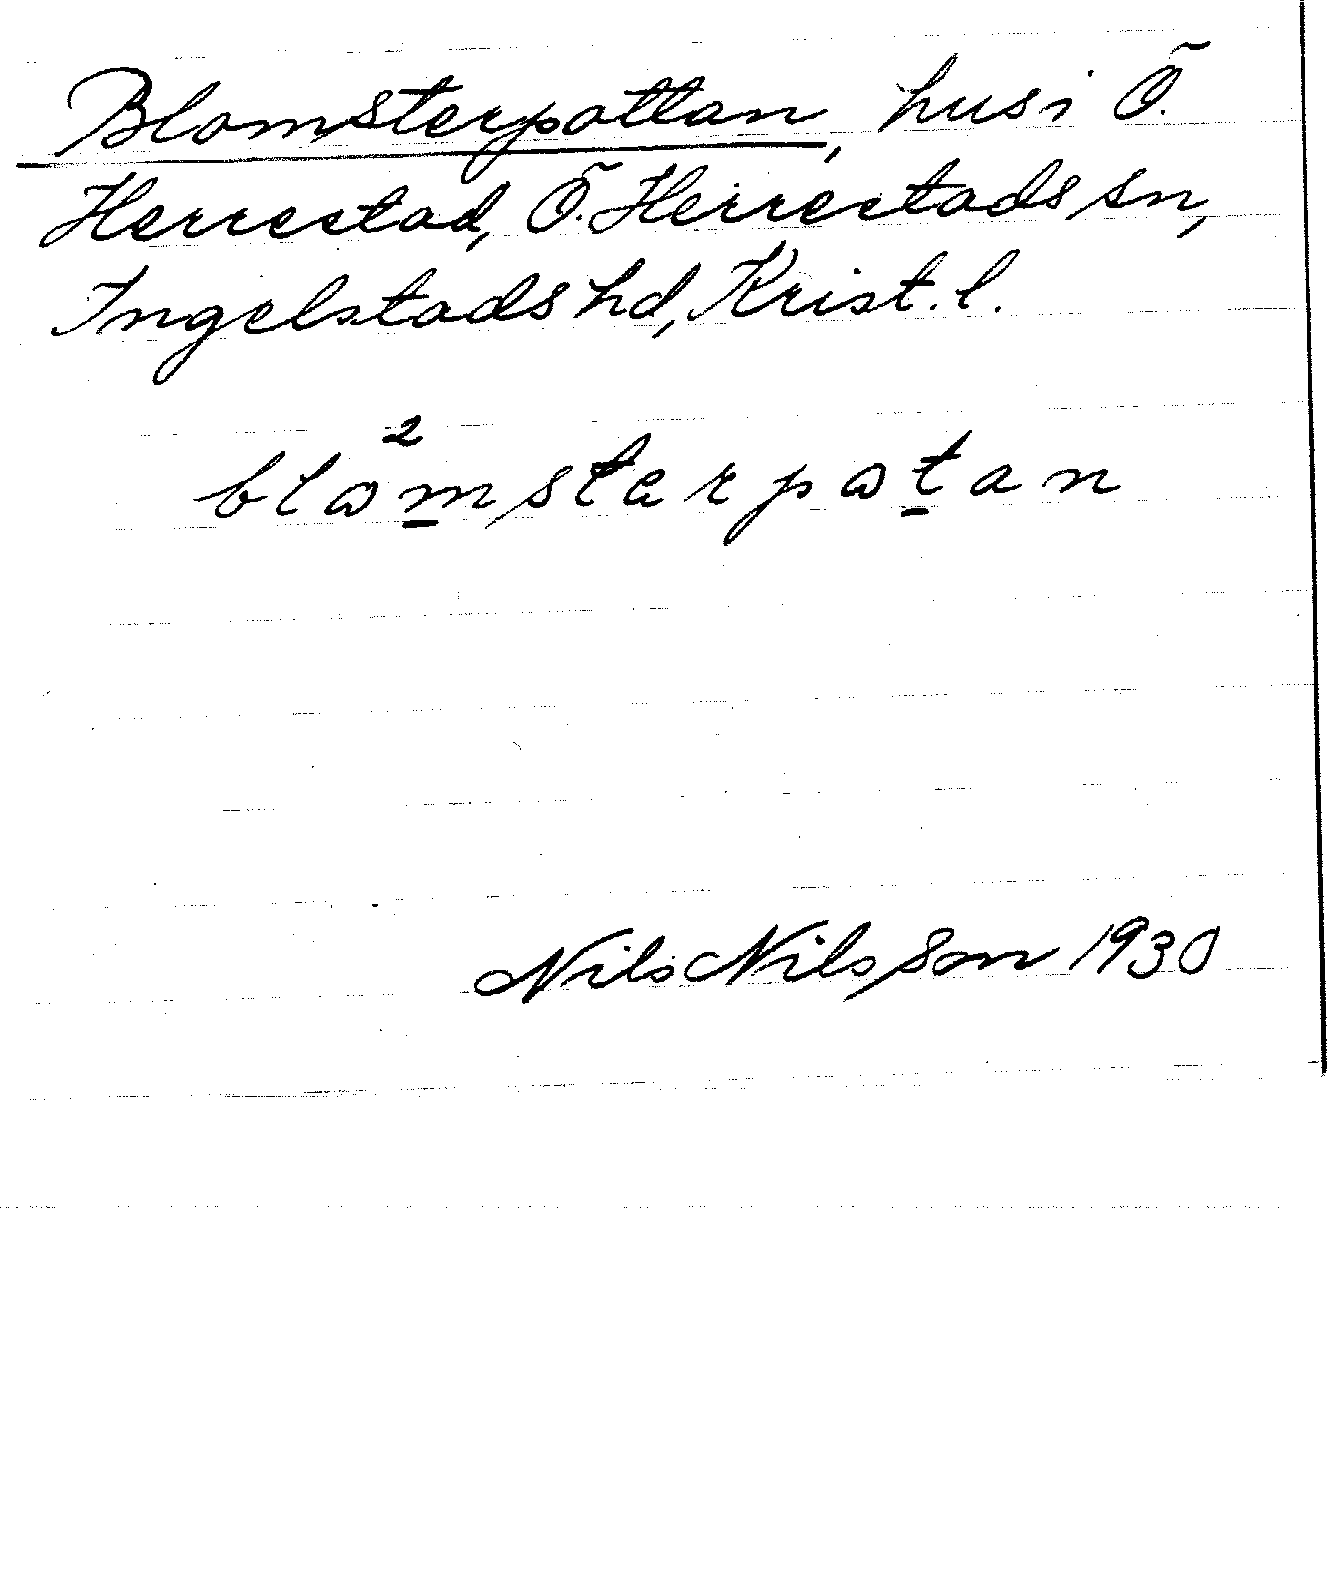 Blomsterpottan, hus i Ö.
Herrestad, Ö. Herrestads sn,
Ingelstads hd, Krist. l.
2
blωmstarpωtan
Nils Nilsson 1930